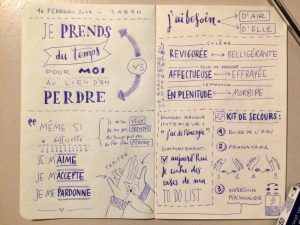 16 FEBRUARY 2017 - SABAH
JE PRENDS
du temps
POUR MOI
AU LIEU D'EN
PERDRE
VS
MÊME SI
difficulté
JE M'AIME
JE M'ACCEPTE
JE ME PARDONNE
j'ai besoin.
D'AIR
D'ELLE
COLÈRE
REVIGORÉE
BELLIGÉRANTE
AFFECTUEUSE
EFFRAYÉE
EN PLENITUDE
MORBIDE
NIVEAU DIALOGUE
INTERIEUR :
"j'ai de l'énergie"
COMPORTEMENT:
aujourd'hui
je coche des
cases de ma
TO DO LIST
KIT DE SECOURS:
1 BOIRE DE L'EAU
2 PRANAYAMA
3 INVERSION
PSYCHOLOGIQUE